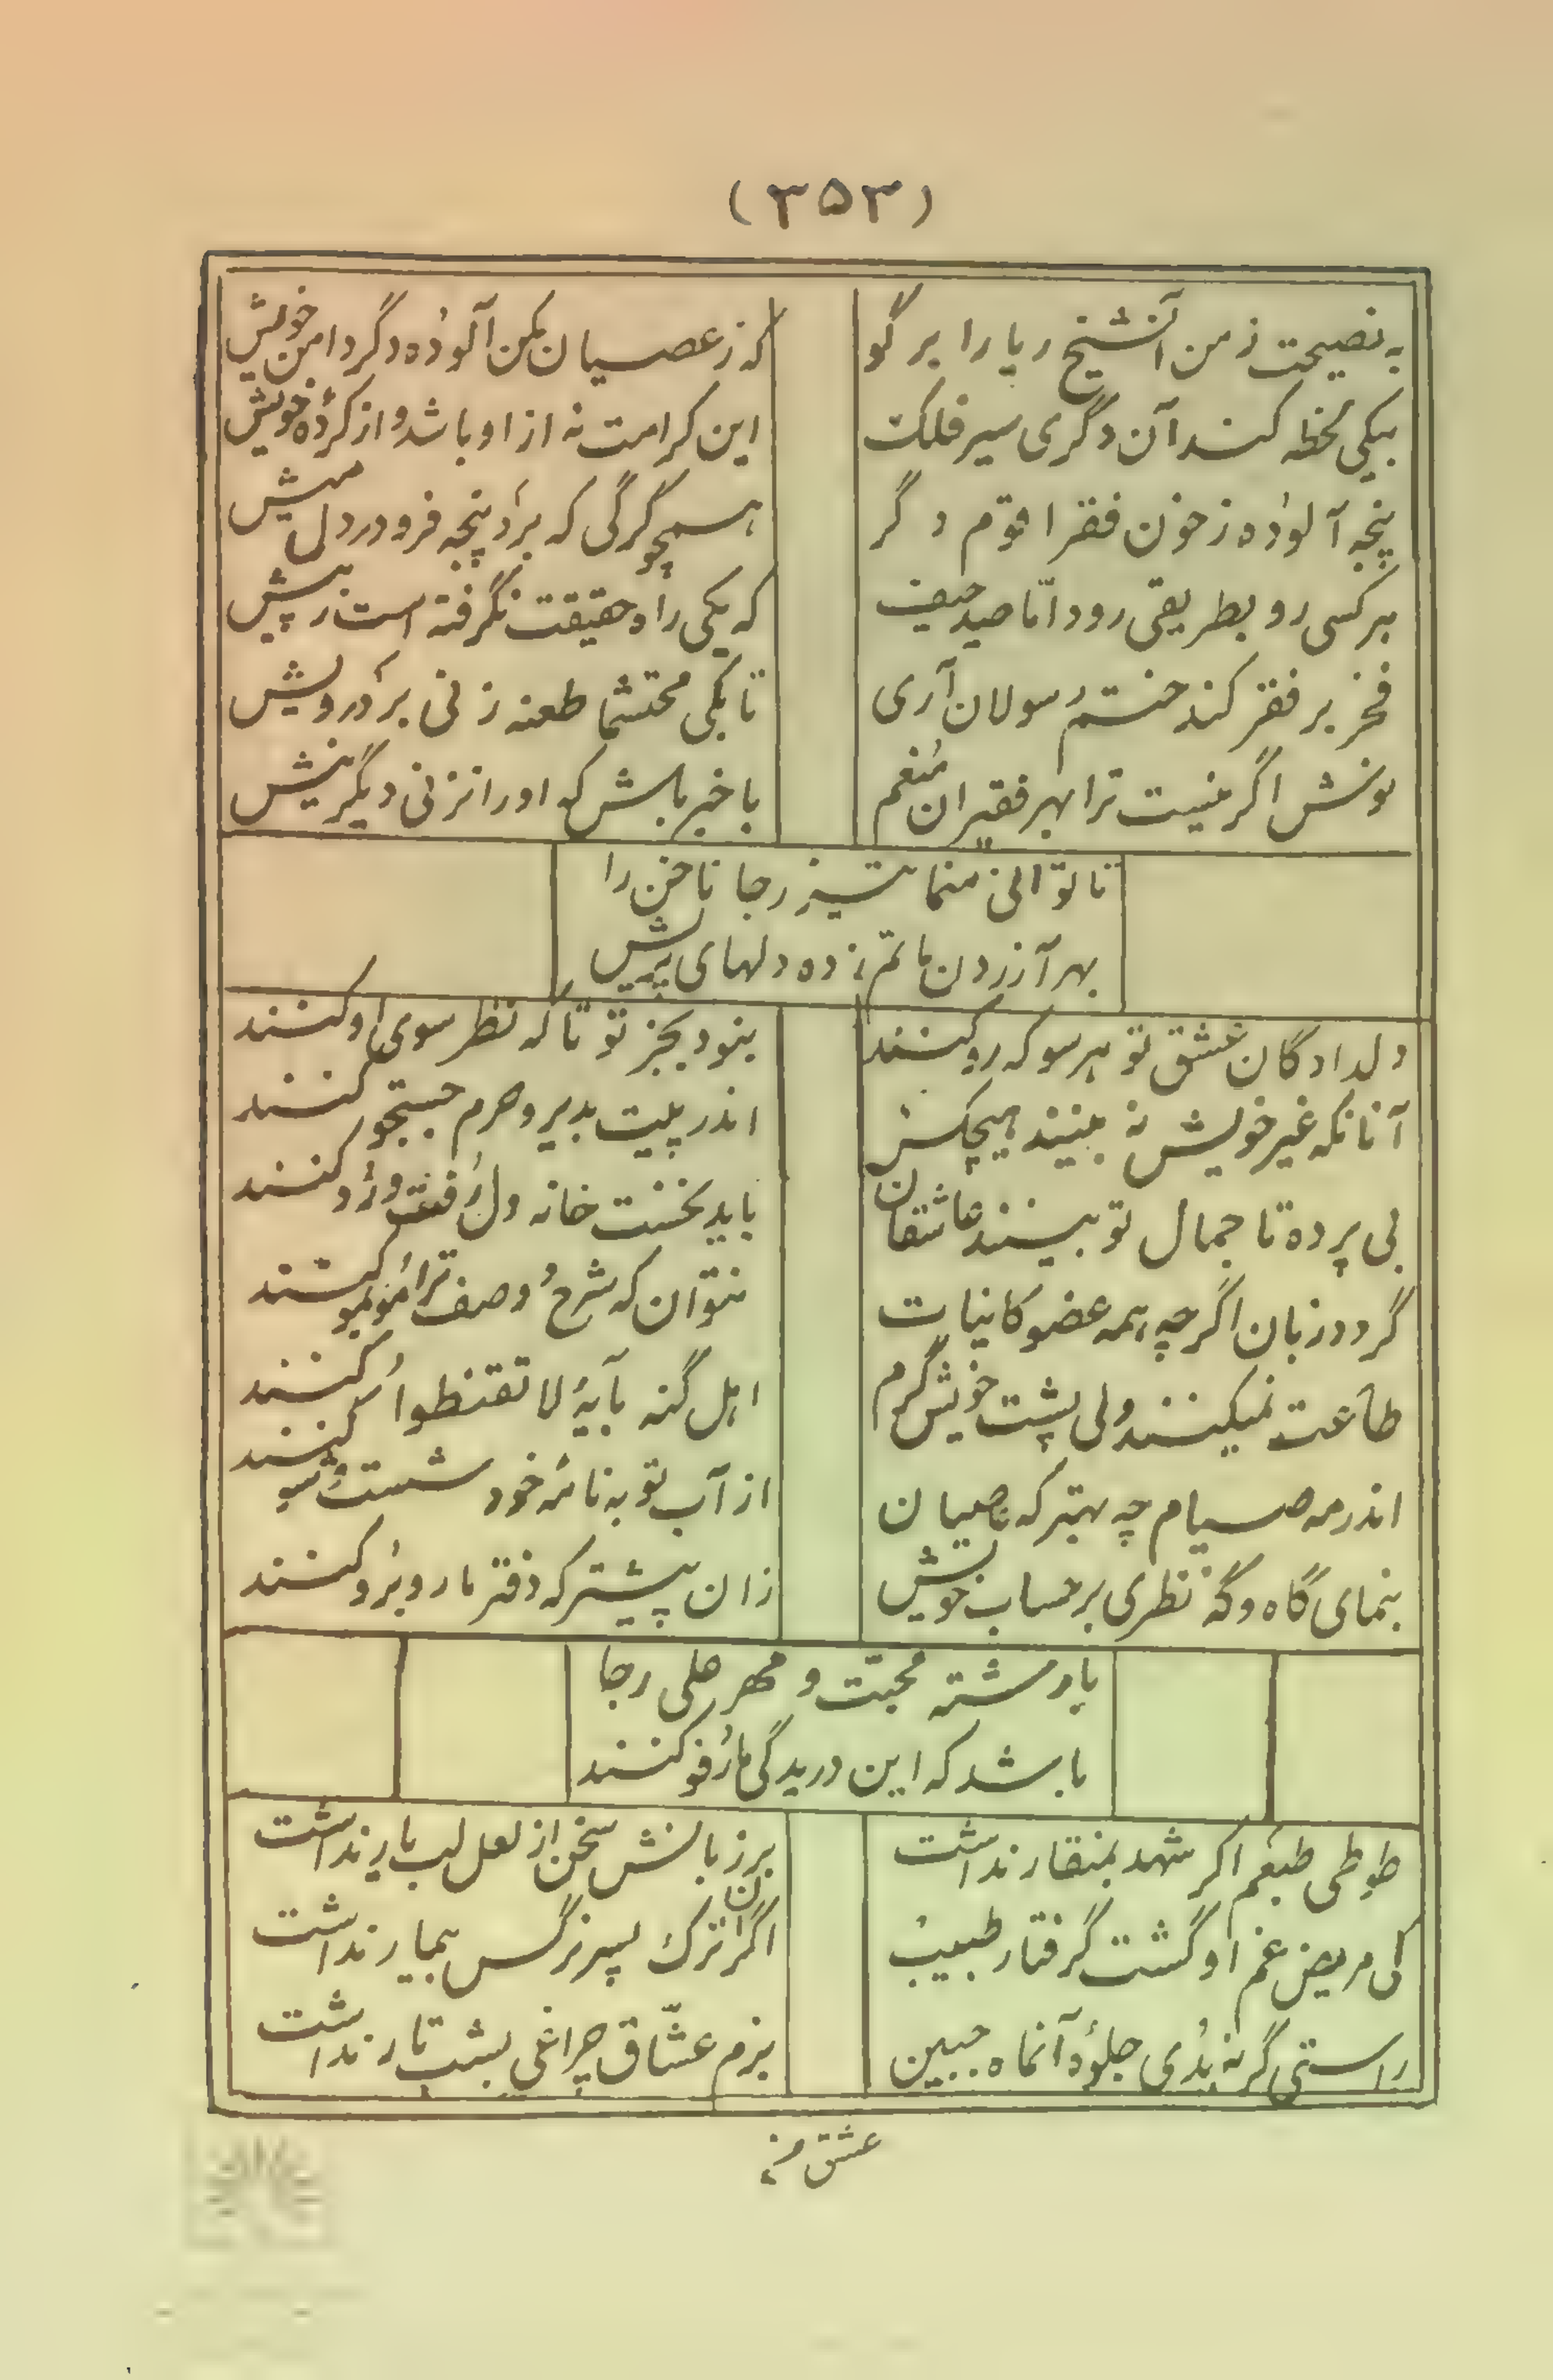 (۳۵۳)
به نصیحت ز من آنشیخ ریا را بر گو
که ز عصیان مکن آلوده دگر دامن خویش
بیکی لحظه کند آن دگری سیر فلک
این کرامت نه از او باشد و از کردهٔ خویش
پنجه آلوده ز خون فقرا قوم دگر
همچو گرگی که برد پنجه فرو در دل میش
هر کسی رو بطریقی رود اما صد حیف
که یکی راه حقیقت نگرفته است ز پیش
فخر بر فقر کند ختم رسولان آری
تا بکی محتشما طعنه زنی بر درویش
نوش اگر نیست ترا بهر فقیران منعم
با خبر باش که او را نزنی دیگر نیش
تا توانی منما تیز رجا ناخن را
بهر آزردن ماتم زده دلهای پریش
دلدادگان عشق تو هر سو که رو کنند
بنود بجز تو تا که نظر سوی او کنند
آنانکه غیر خویش نه بینند هیچکس
اندر پیت بدیر و حرم جستجو کنند
بی پرده تا جمال تو بینند عاشقان
باید نخست خانه دل رفت و رو کنند
گردد زبان اگر چه همه عضو کاینات
نتوان که شرح وصف ترا مو بمو کنند
طاعت نمیکنند ولی پشت خویش گرم
اهل گنه بآیهٔ لا تقنطوا کنند
اندر مه صیام چه بهتر که عاصیان
از آب توبه نامه خود شست و شو کنند
بنمای گاه و گه نظری بر حساب خویش
زان پیشتر که دفتر ما رو برو کنند
با رشته محبّت و مهر علی رجا
باشد که این دریدگی ما رفو کنند
طوطی طبعم اگر شهد بمنقار نداشت
بر زبانش سخن از لعل لب یار نداشت
کی مریض غم او گشت گرفتار طبیب
اگر آن ترک پسر نرگس بیمار نداشت
راستی گر نه بدی جلوهٔ آنماه جبین
بزم عشّاق چراغی بشب تار نداشت
عشق من